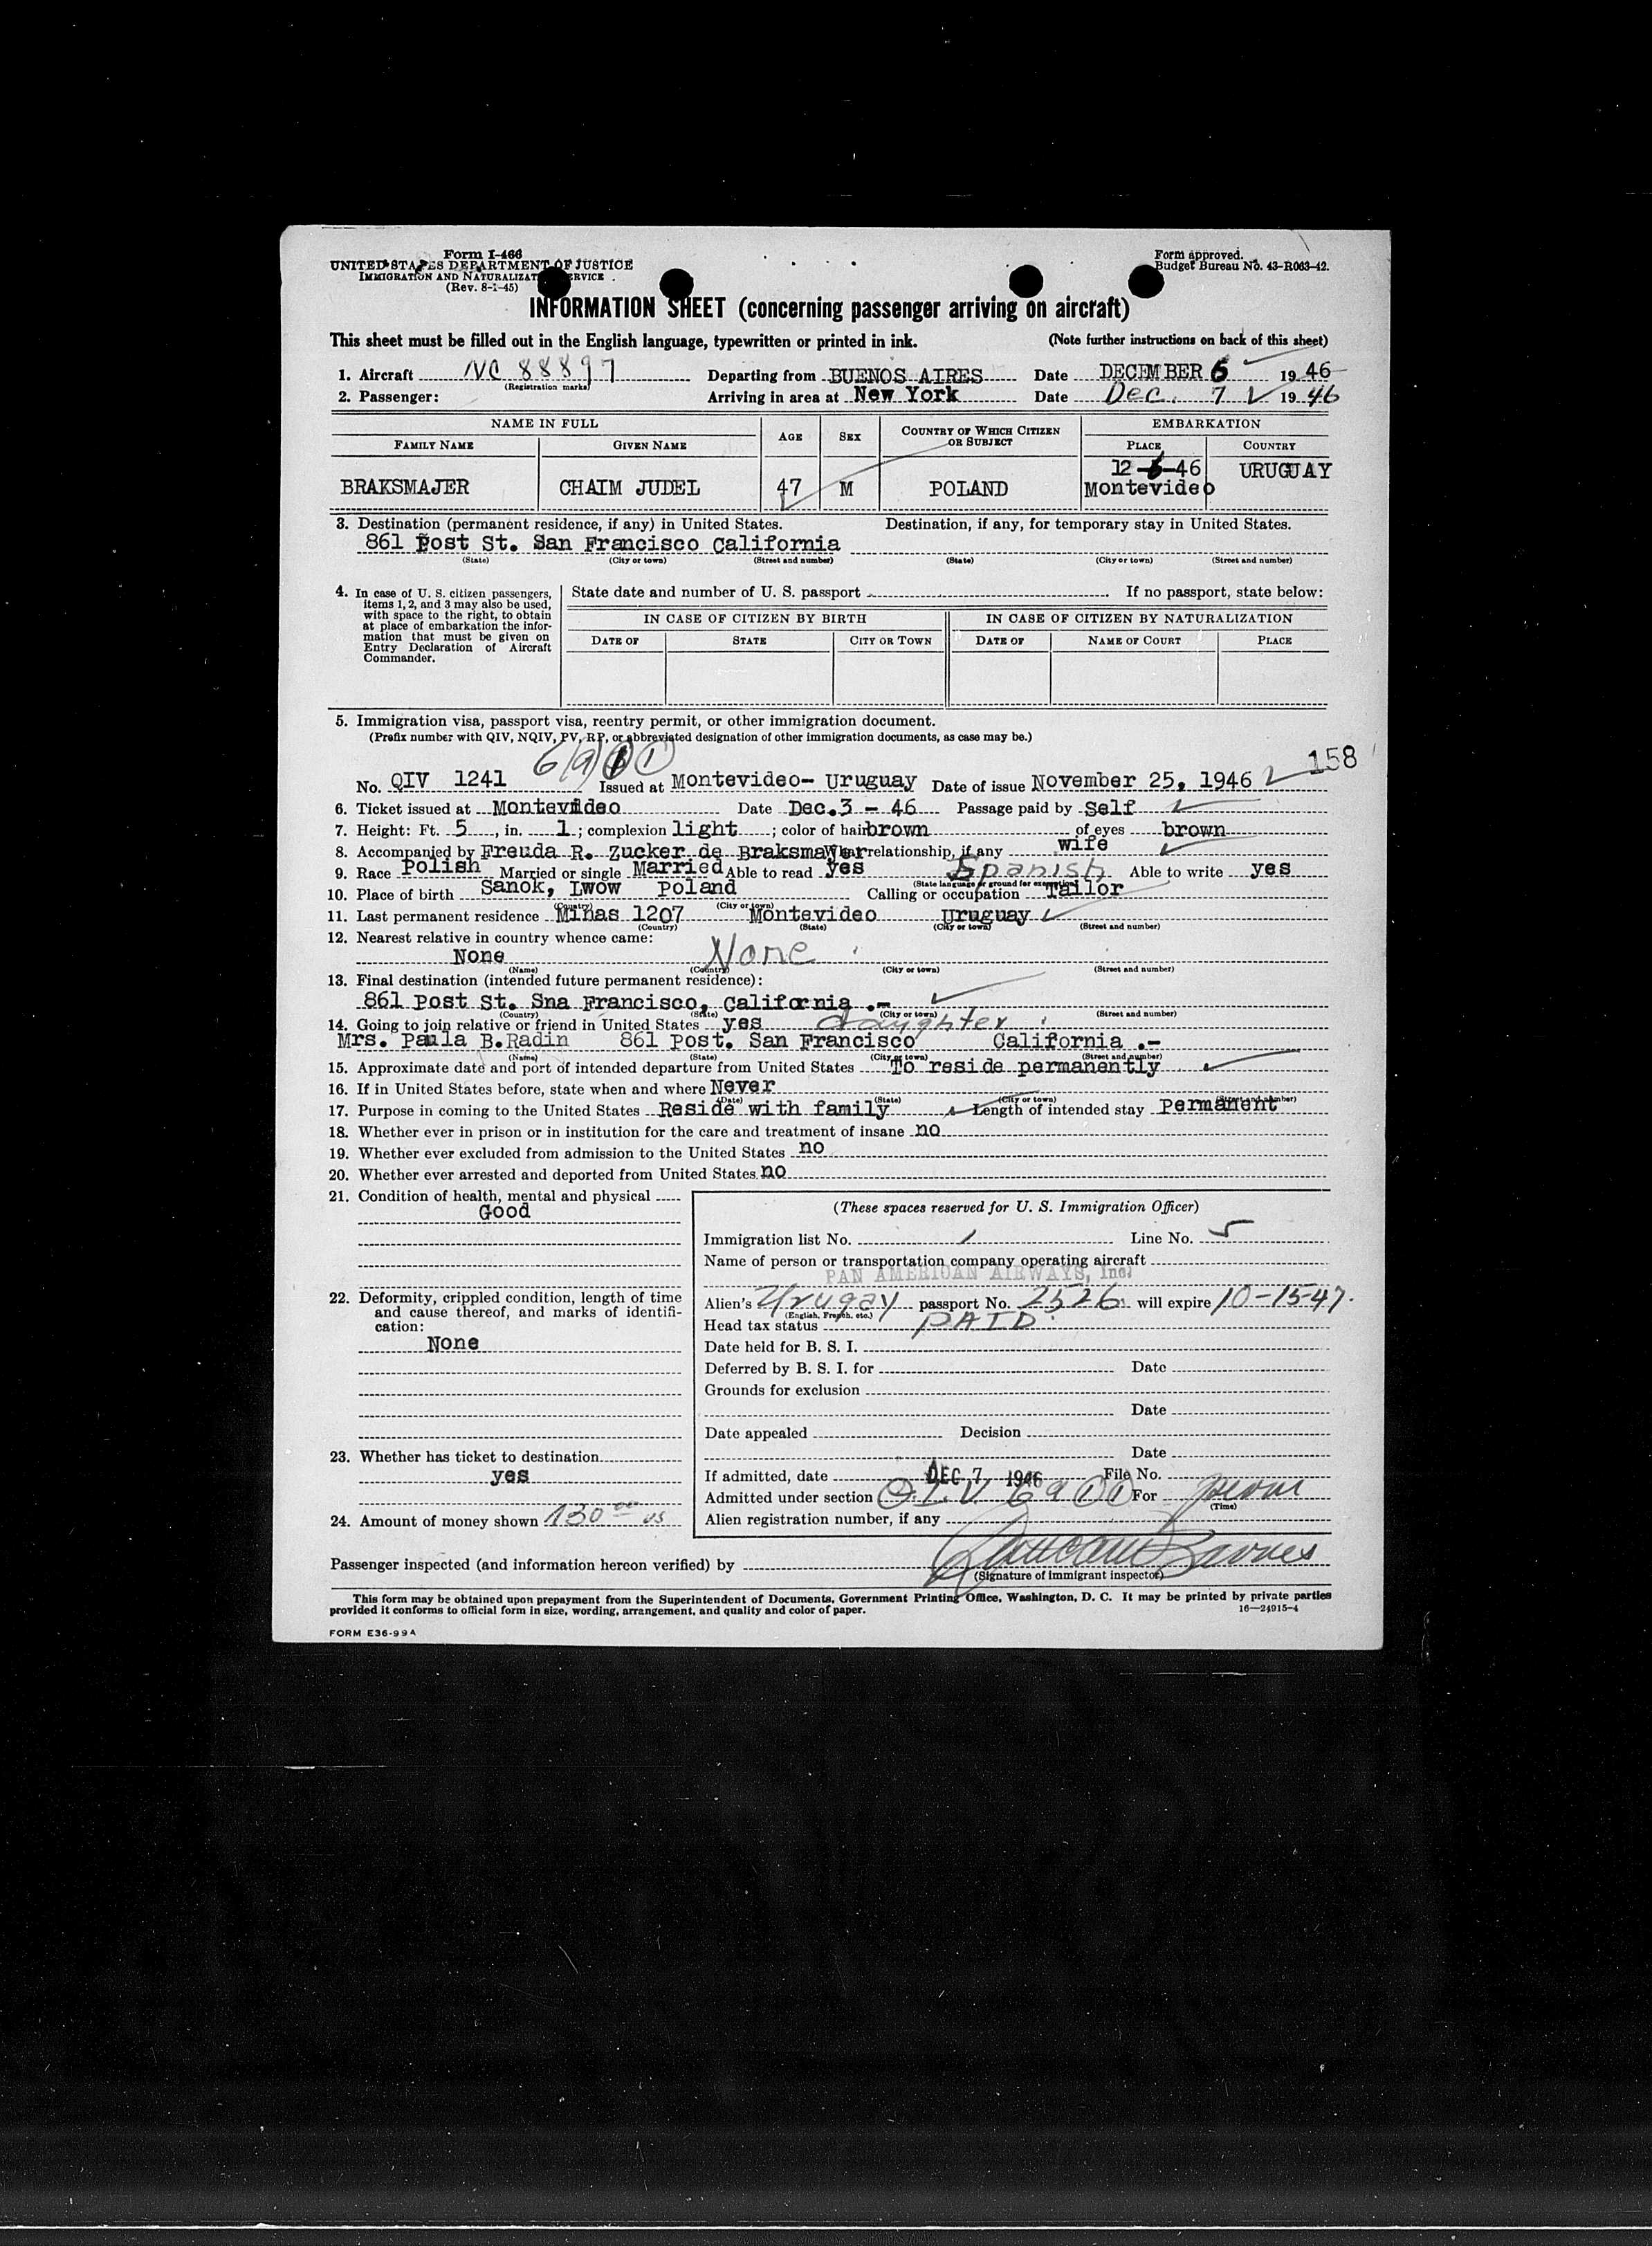 Form I-466
UNITED STATES DEPARTMENT OF JUSTICE
IMMIGRATION AND NATURALIZAT ERVICE
(Rev. 8-1-45)
Form approved.
Budget Bureau No. 43-R063-42.
INFORMATION SHEET (concerning passenger arriving on aircraft)
This sheet must be filled out in the English language, typewritten or printed in ink. (Note further instructions on back of this sheet)
1. Aircraft NC 88897 Departing from BUENOS AIRES Date DECEMBER 6 1946
(Registration marks)
2. Passenger: Arriving in area at New York Date Dec. 7 1946
NAME IN FULL AGE SEX COUNTRY OF WHICH CITIZEN OR SUBJECT EMBARKATION
FAMILY NAME GIVEN NAME PLACE COUNTRY
12-6-46 URUGUAY
BRAKSMAJER CHAIM JUDEL 47 M POLAND Montevideo
3. Destination (permanent residence, if any) in United States. Destination, if any, for temporary stay in United States.
861 Post St. San Francisco California
(State) (City or town) (Street and number) (State) (City or town) (Street and number)
4. In case of U. S. citizen passengers, items 1, 2, and 3 may also be used, with space to the right, to obtain at place of embarkation the information that must be given on Entry Declaration of Aircraft Commander.
State date and number of U. S. passport If no passport, state below:
IN CASE OF CITIZEN BY BIRTH IN CASE OF CITIZEN BY NATURALIZATION
DATE OF STATE CITY OR TOWN DATE OF NAME OF COURT PLACE
5. Immigration visa, passport visa, reentry permit, or other immigration document.
(Prefix number with QIV, NQIV, PV, RP, or abbreviated designation of other immigration documents, as case may be.)
158
No. QIV 1241 Issued at Montevideo- Uruguay Date of issue November 25, 1946
6. Ticket issued at Montevideo Date Dec.3 - 46 Passage paid by Self
7. Height: Ft. 5, in. 1; complexion light; color of hair brown of eyes brown
8. Accompanied by Freuda R. Zucker de Braksmajer What relationship, if any wife
9. Race Polish Married or single Married Able to read yes Spanish Able to write yes
(State language or ground for exemption)
10. Place of birth Sanok, Lwow Poland Calling or occupation Tailor
(Country) (City or town)
11. Last permanent residence Minas 1207 Montevideo Uruguay
(Country) (State) (City or town) (Street and number)
12. Nearest relative in country whence came:
None None
(Name) (Country) (City or town) (Street and number)
13. Final destination (intended future permanent residence):
861 Post St. Sna Francisco, California .-
(Country) (State) (City or town) (Street and number)
14. Going to join relative or friend in United States yes daughter
Mrs. Paula B.Radin 861 Post. San Francisco California .-
(Name) (State) (City or town) (Street and number)
15. Approximate date and port of intended departure from United States To reside permanently
16. If in United States before, state when and where Never
(Date) (State) (City or town) (Street and number)
17. Purpose in coming to the United States Reside with family Length of intended stay Permanent
18. Whether ever in prison or in institution for the care and treatment of insane no
19. Whether ever excluded from admission to the United States no
20. Whether ever arrested and deported from United States no
21. Condition of health, mental and physical
Good
22. Deformity, crippled condition, length of time and cause thereof, and marks of identification:
None
23. Whether has ticket to destination
yes
24. Amount of money shown 130 00 US
(These spaces reserved for U. S. Immigration Officer)
Immigration list No. 1 Line No. 5
Name of person or transportation company operating aircraft
PAN AMERICAN AIRWAYS, Inc.
Alien's Urugay passport No. 2526 will expire 10-15-47.
(English, French, etc.)
Head tax status PAID
Date held for B. S. I.
Deferred by B. S. I. for Date
Grounds for exclusion
Date
Date appealed Decision
Date
If admitted, date DEC 7 1946 File No.
Admitted under section Q.I.V. 6 a (1) (1) For perm
(Time)
Alien registration number, if any
Passenger inspected (and information hereon verified) by
(Signature of immigrant inspector)
This form may be obtained upon prepayment from the Superintendent of Documents, Government Printing Office, Washington, D. C. It may be printed by private parties
provided it conforms to official form in size, wording, arrangement, and quality and color of paper. 16—24915-4
FORM E36-99A